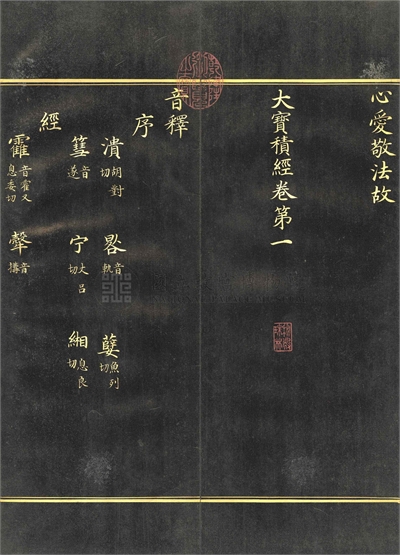 心愛敬法故
大寶積經卷第一
音釋
序
潰胡對切 晷音軌 孽魚列切
篲音遂 宁丈呂切 緗息良切
經
靃音霍又息委切 音擣